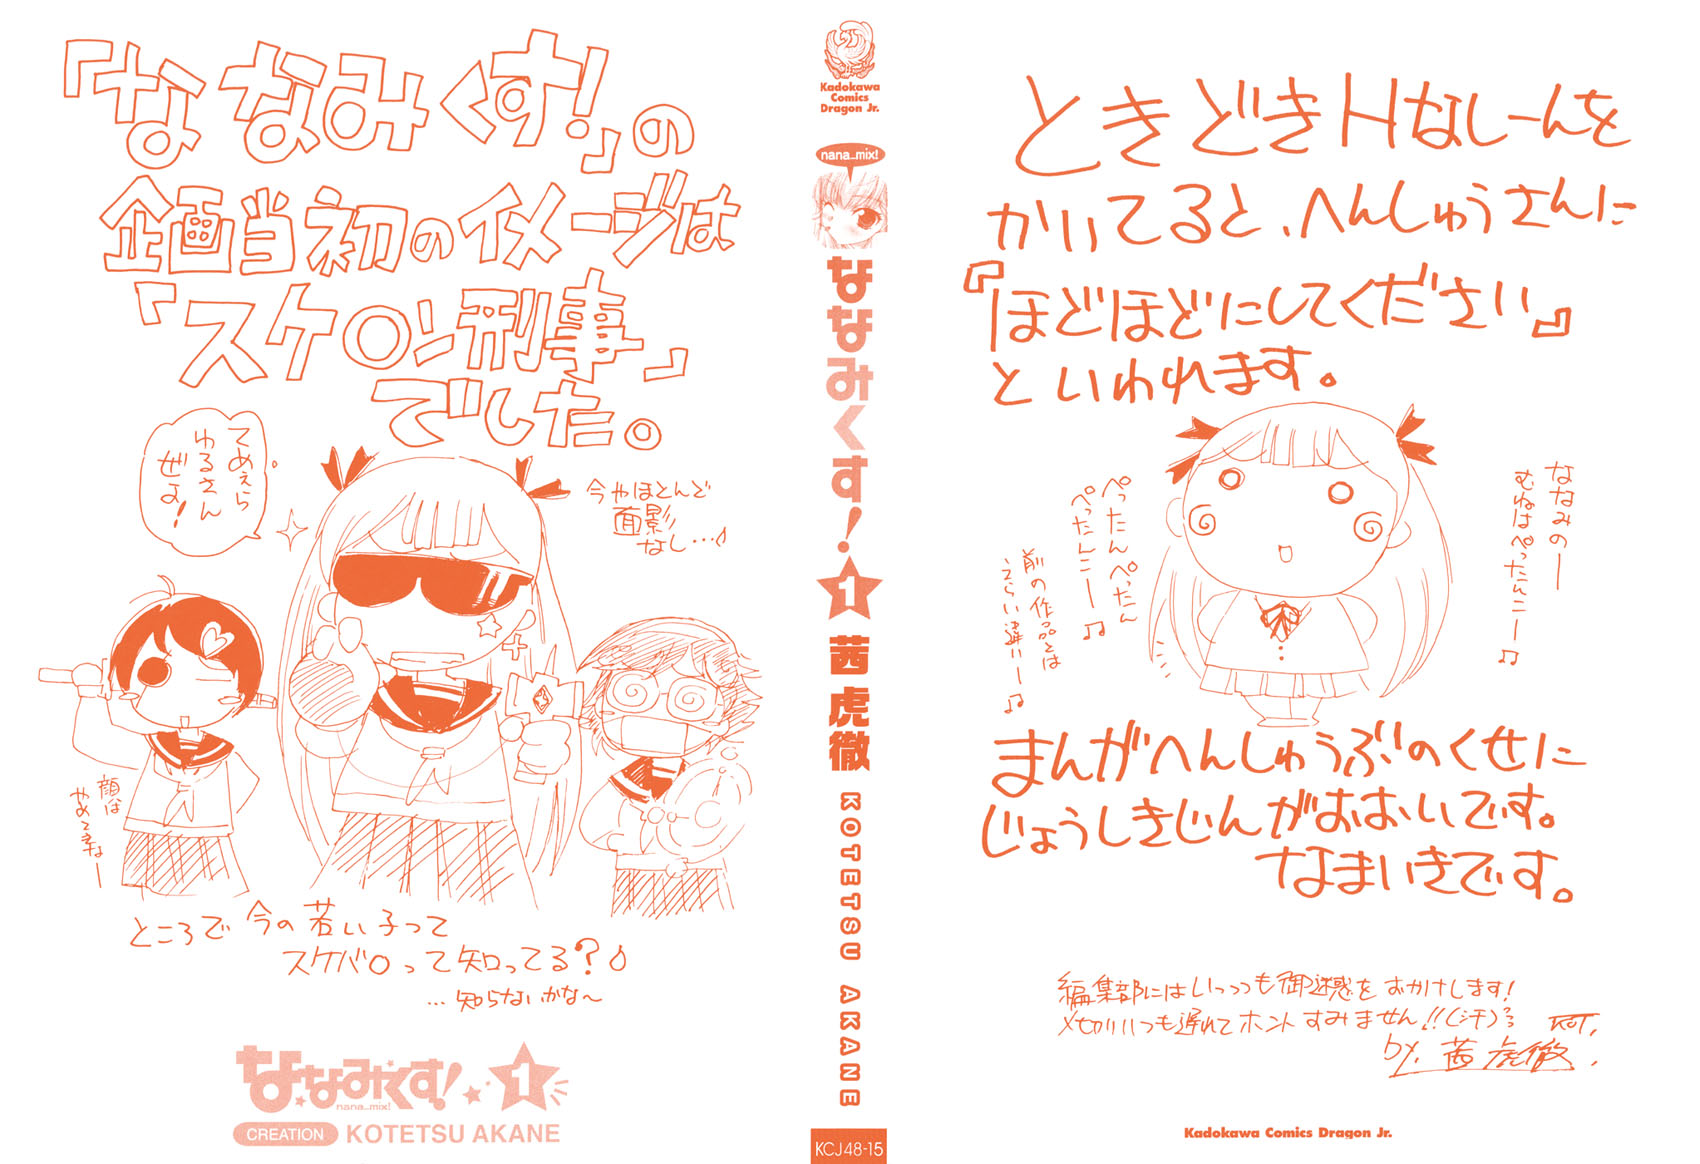 「ななみくす!」の
企画当初のイメージは
「スケ〇ン刑事」
でした。
てめぇら
ゆるさん
ぜよ!
今やほとんど
面影
なし…
顔は
やめてネー
ところで今の若い子って
スケバ〇って知ってる?
…知らないかな〜
ななみくす!
nana_mix!
1
CREATION KOTETSU AKANE
Kadokawa
Comics
Dragon Jr.
nana_mix!
ななみくす!
1
茜虎徹
KOTETSU AKANE
KCJ48-15
ときどきHなしーんを
かいてると、へんしゅうさんに
『ほどほどにしてください』
といわれます。
ななみのー
むねはぺったんこー♫
ぺったんぺったん
ぺったんこー♫
前の作品とは
えらい違いー♫
まんがへんしゅうぶのくせに
じょうしきじんがおおいです。
なまいきです。
編集部にはいっつも御迷惑をおかけします!
〆切りいつも遅れてホントすみません!!(汗)
KOT.
by. 茜虎徹.
Kadokawa Comics Dragon Jr.